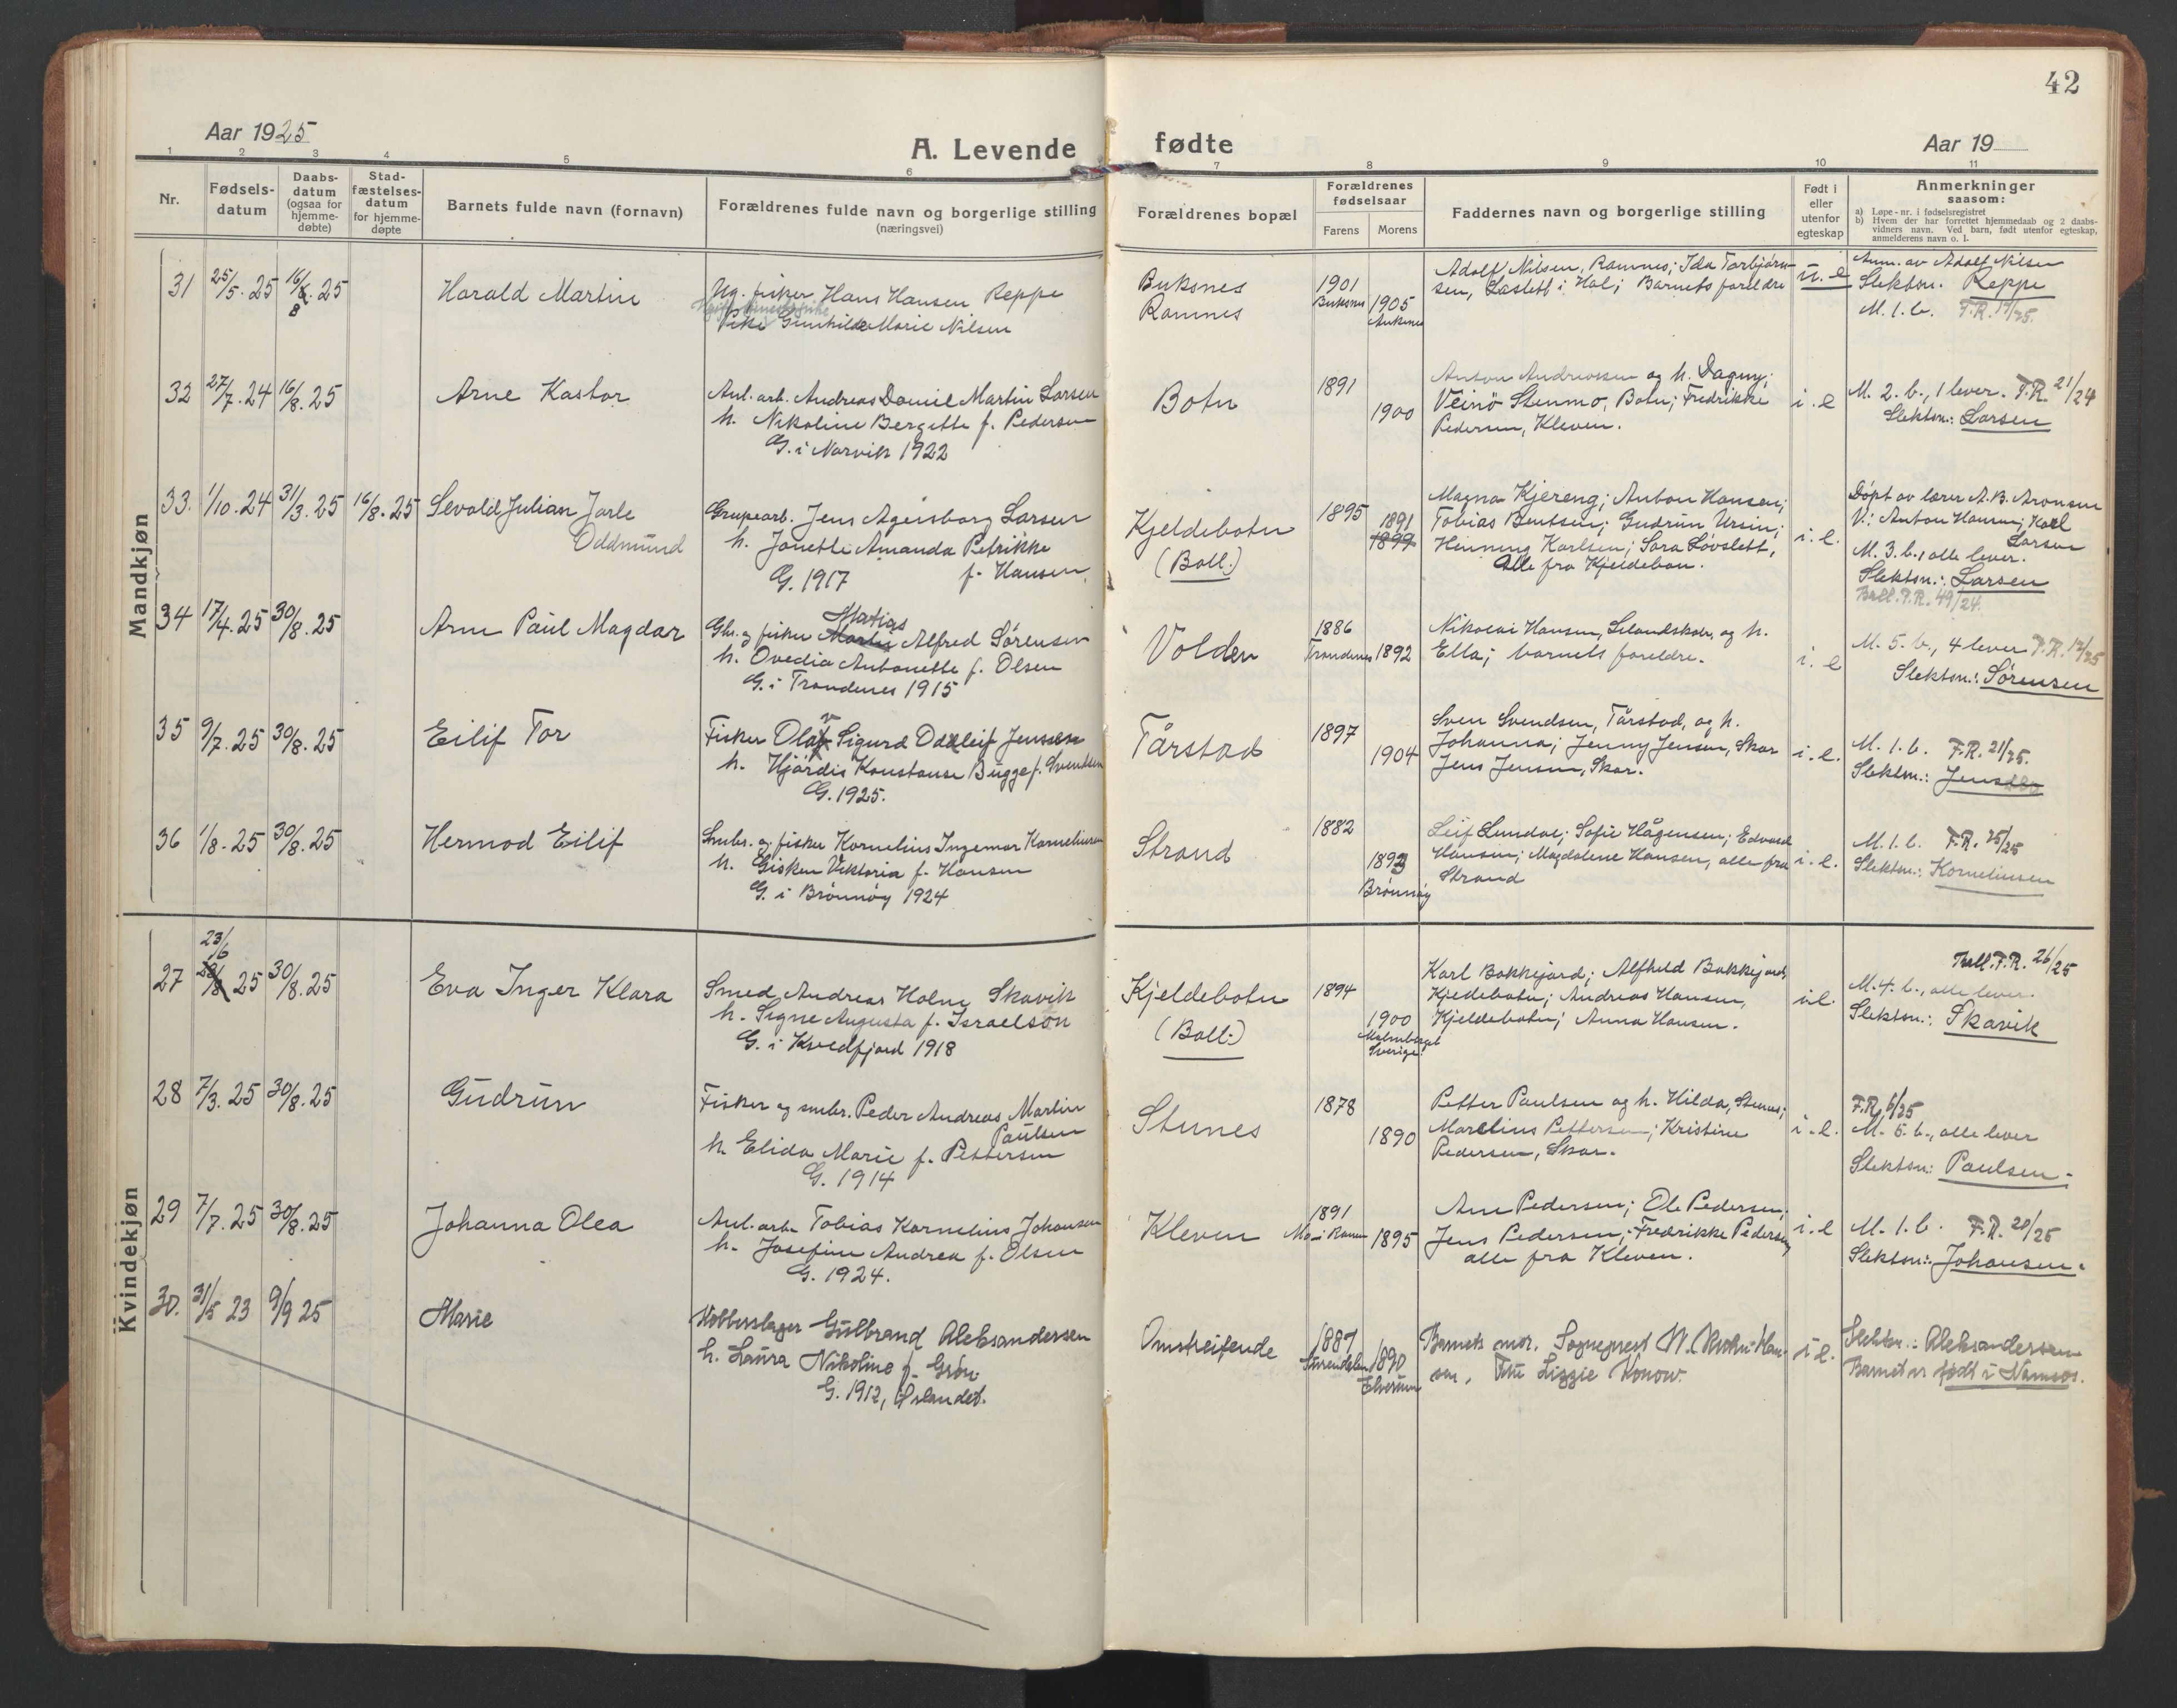 42
Aar 1925
A. Levende fødte
Aar 19
1 2 3 4 5 6 7 8 9 10 11
Nr.
Fødsels-datum
Daabs-datum (ogsaa for hjemme-døbte)
Stad-fæstelses-datum for hjemme-døpte
Barnets fulde navn (fornavn)
Forældrenes fulde navn og borgerlige stilling
(næringsvei)
Forældrenes bopæl
Forældrenes fødselsaar
Farens Morens
Faddernes navn og borgerlige stilling
Født i eller utenfor egteskap
Anmerkninger
saasom:
a) Løpe-nr. i fødselsregistret
b) Hvem der har forrettet hjemmedaab og 2 daabs-
vidners navn. Ved barn, født utenfor egteskap,
anmelderens navn o. l.
Mandkjøn
31 25/5. 25 16/8. 25
Harald Martin
Ug. fisker Hans Hansen Reppe
Pike Gunhilda Marie Nilsen
Buksnes
Ramnes
1901
Buksnes 1905
Adolf Nilsen, Ramnes; Ida Torbjørn-
sen, Løslett i Hol; Barnets foreldre
u. e
Anm. av Adolf Nilsen
Slektsn. Reppe
M. 1. b. F.R. 17/25.
32 27/7. 24 16/8. 25
Arne Kastor
Anl. arb. Andreas Daniel Martin Larsen
h. Nikoline Bergitte f. Pedersen
G. i Narvik 1922
Botn
1891
1900
Anton Andreassen og h. Dagny;
Veinö Stenmo, Botn; Fredrikke
Pedersen, Kleven.
i. e
M. 2. b., 1 lever. F.R. 21/24
Slektsn.: Larsen
33. 1/10. 24 31/3. 25 16/8. 25
Sevald Julian Jarle
Oddmund
Grupearb. Jens Agersborg Larsen
h. Janette Amanda Petrikke
f. Hansen
G. 1917
Kjeldebotn
(Ball.)
1895
1891
1899
Magna Kjereng; Anton Hansen;
Tobias Bentsen; Gudrun Ursin;
Henning Karlsen; Sara Løvslett,
Alle fra Kjeldebon.
i. e.
Døpt av lærer A.B. Aronsen
V.: Anton Hansen; Karl
Larsen
M. 3. b., alle lever.
Slektsn.: Larsen
Ball. F.R. 49/24.
34 17/4. 25 30/8. 25
Arne Paul Magdar
Matias
Gbr. og fisker Martin Alfred Sørensen
h. Ovedia Antonette f. Olsen
G. i Trondenes 1915
Volden
1886
Trondenes 1892
Nikolai Hansen, Lilandskar, og h.
Ella; barnets foreldre.
i. e
M. 5. b., 4 lever F.R. 12/25
Slektsn.: Sørensen
35 9/7. 25 30/8. 25
Eilif Tor
Fisker Olav Sigurd Oddleif Jenssen
h. Hjördis Konstanse Bugge f. Svendsen
G. 1925.
Tårstad
1897
1904
Sven Svendsen, Tårstad, og h.
Johanna; Jenny Jensen, Skar
Jens Jensen, Skar.
i. e.
M. 1. b. F.R. 21/25.
Slektsn.: Jenssen
36 1/8. 25 30/8. 25
Hermod Eilif
Smbr. og fisker Kornelius Ingemar Korneliussen
h. Gisken Viktoria f. Hansen
G. i Brönnöy 1924
Strand
1882
1893
Brönnöy
Leif Lundal; Sofie Hågensen; Edvard
Hansen; Magdalene Hansen, alle fra
Strand
i. e.
M. 1. b. F.R. 25/25
Slektsn.: Korneliussen
Kvindekjøn
23/6
27 25 30/8. 25
Eva Inger Klara
Smed Andreas Holm Skavik
h. Signe Augusta f. Israelson
G. i Kvedfjord 1918
Kjeldebotn
(Ball.)
1894
1900
Malmberget
Sverige
Karl Bakkejord; Alfhild Bakkejord,
Kjeldebotn; Andreas Hansen,
Kjeldebotn; Anna Hansen.
i. e.
Ball. F.R. 26/25
M. 4. b., alle lever.
Slektsn.: Skavik
28 7/3. 25 30/8. 25
Gudrun
Fisker og smbr. Peder Andreas Martin
Paulsen
h. Elida Marie f. Pettersen
G. 1914
Stunes
1878
1890
Petter Paulsen og h. Hilda, Stunes;
Marelius Pettersen; Kristine
Pedersen, Skar.
i. e.
F.R. 6/25
M. 5. b., alle lever
Slektsn: Paulsen.
29 7/7. 25 30/8. 25
Johanna Olea
Anl. arb. Tobias Kornelius Johansen
h. Josefine Andrea f. Olsen
G. 1924.
Kleven
1891
Mo i Ranen 1895
Arne Pedersen; Ole Pedersen;
Jens Pedersen; Fredrikke Pedersen,
alle fra Kleven.
i. e
M. 1. b. F.R. 20/25
Slektsn.: Johansen.
30. 31/5 23 9/9 25
Marie
Kobberslager Gulbrand Aleksandersen
h. Laura Nikoline f. Grön
G. 1912, Ørlandet.
Omstreifende
1887
Surendalen 1890
Elverum
Barnets mor. Sogneprest Han-
sen, Lizzie Konow.
i e.
Slektsn.: Aleksandersen
Barnet er født i Namsos.